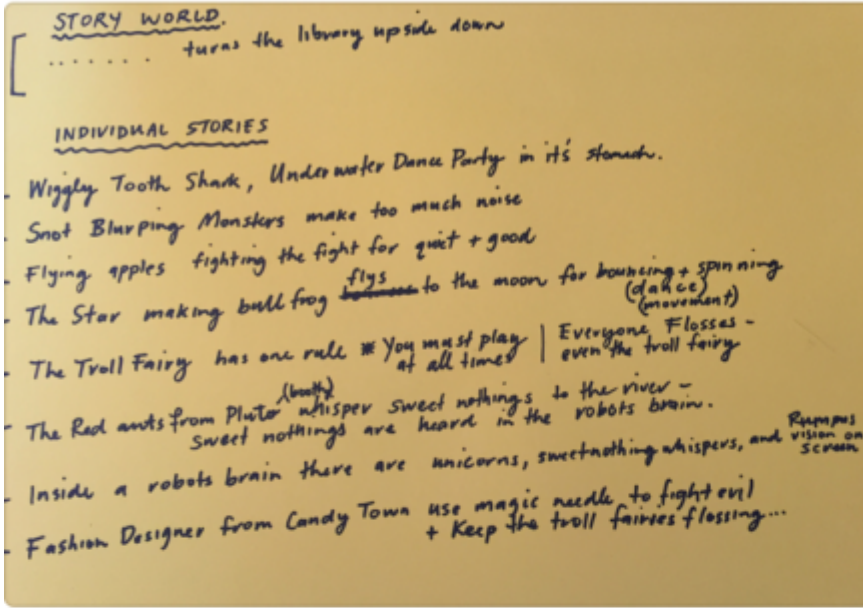 STORY WORLD.
....... turns the library upside down
INDIVIDUAL STORIES
- Wiggly Tooth Shark, Underwater Dance Party in it's stomach.
- Snot Blurping Monsters make too much noise
- Flying apples fighting the fight for quiet + good
flys
- The Star making bull frog to the moon for bouncing + spinning
(dance)
(movement)
- The Troll Fairy has one rule * You must play | Everyone Flosses -
at all times | even the troll fairy
- The Red ants from Pluto whisper sweet nothings to the river -
sweet nothings are heard in the robots brain.
- Inside a robots brain there are unicorns, sweetnothing whispers, and Rumpus
vision on
screen
- Fashion Designer from Candy Town use magic needle to fight evil
+ Keep the troll fairies flossing...